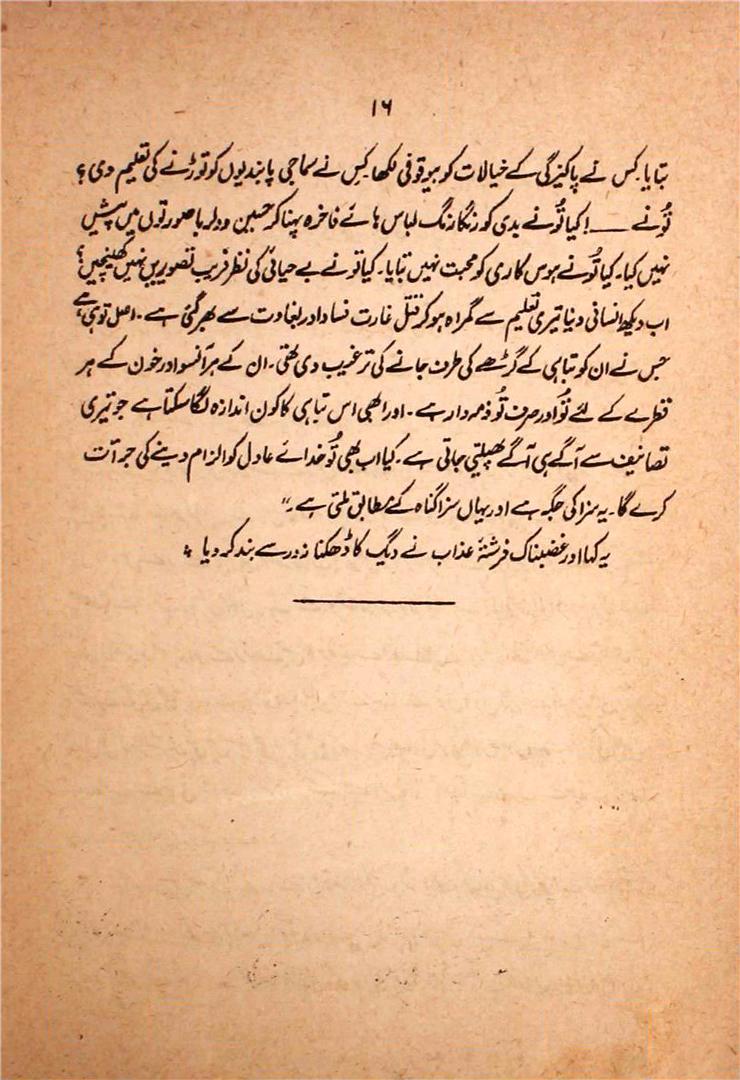 ۱۶
بتایا۔ کس نے پاکیزگی کے خیالات کو بیوقوفی لکھا۔ کس نے سماجی پابندیوں کو توڑنے کی تعلیم دی؟
تُو نے ——! کیا تُو نے بدی کو رنگا رنگ لباس ہائے فاخرہ پہنا کر حسین و دلربا صورتوں میں پیش
نہیں کیا۔ کیا تُو نے ہوس کاری کو محبت نہیں بتایا۔ کیا تو نے بے حیائی کی نظر فریب تصویریں نہیں کھینچیں؟
اب دیکھ انسانی دنیا تیری تعلیم سے گمراہ ہو کر قتل غارت فساد اور بغاوت سے بھر گئی ہے۔ اصل تو ہی ہے
جس نے ان کو تباہی کے گڑھے کی طرف جانے کی ترغیب دی تھی۔ ان کے ہر آنسو اور خون کے ہر
قطرے کے لئے تُو اور صرف تُو ذمہ دار ہے۔ اور ابھی اس تباہی کا کون اندازہ لگا سکتا ہے جو تیری
تصانیف سے آگے ہی آگے پھیلتی جاتی ہے۔ کیا اب بھی تُو خدائے عادل کو الزام دینے کی جرأت
کرے گا۔ یہ سزا کی جگہ ہے اور یہاں سزا گناہ کے مطابق ملتی ہے۔"
یہ کہا اور غضبناک فرشتۂ عذاب نے دیگ کا ڈھکنا زور سے بند کر دیا ؞